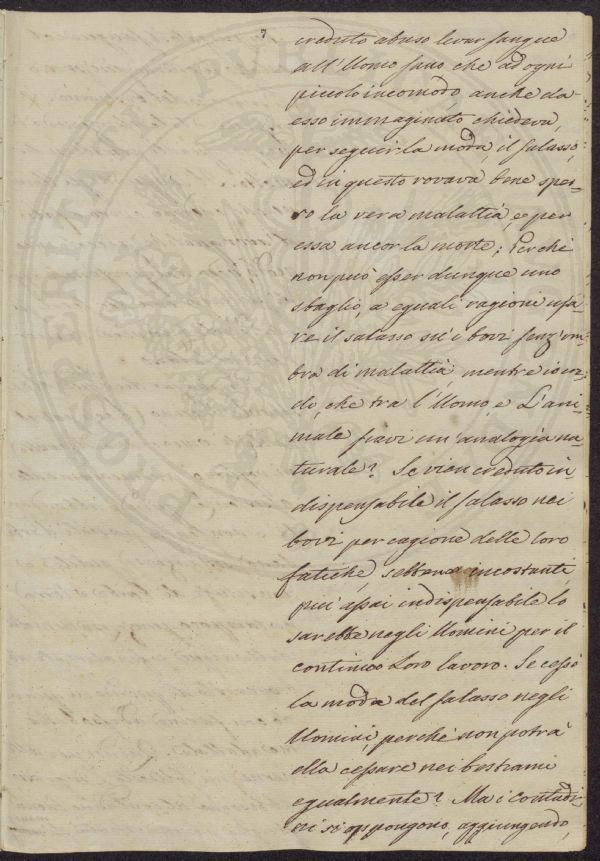 7
creduto abuso levar sangue
all'Uomo sano che ad ogni
piccolo incomodo, anche da
esso immaginato chiedeva,
per seguir la moda, il salasso,
ed in questo rovava bene spes-
so la vera malattia, e per
essa ancor la morte; Perchè
non può esser dunque uno
sbaglio, a eguali ragioni usa-
re il salasso su' i bovi senz'om-
bra di malattia, mentre io cre-
do, che tra l'Uomo, e L'ani-
male siavi un'analogia na-
turale? Se vien creduto in-
dispensabile il salasso nei
bovi per cagione delle loro
fatiche, sebbene incostanti,
più assai indispensabile lo
sarebbe negli Uomini per il
continuo Loro lavoro. Se cessò
la moda del salasso negli
Uomini, perchè non potrà
ella cessare nei bestiami
egualmente? Ma i contadi-
ni si oppongono, aggiungendo,
PROSPERITATI PVB